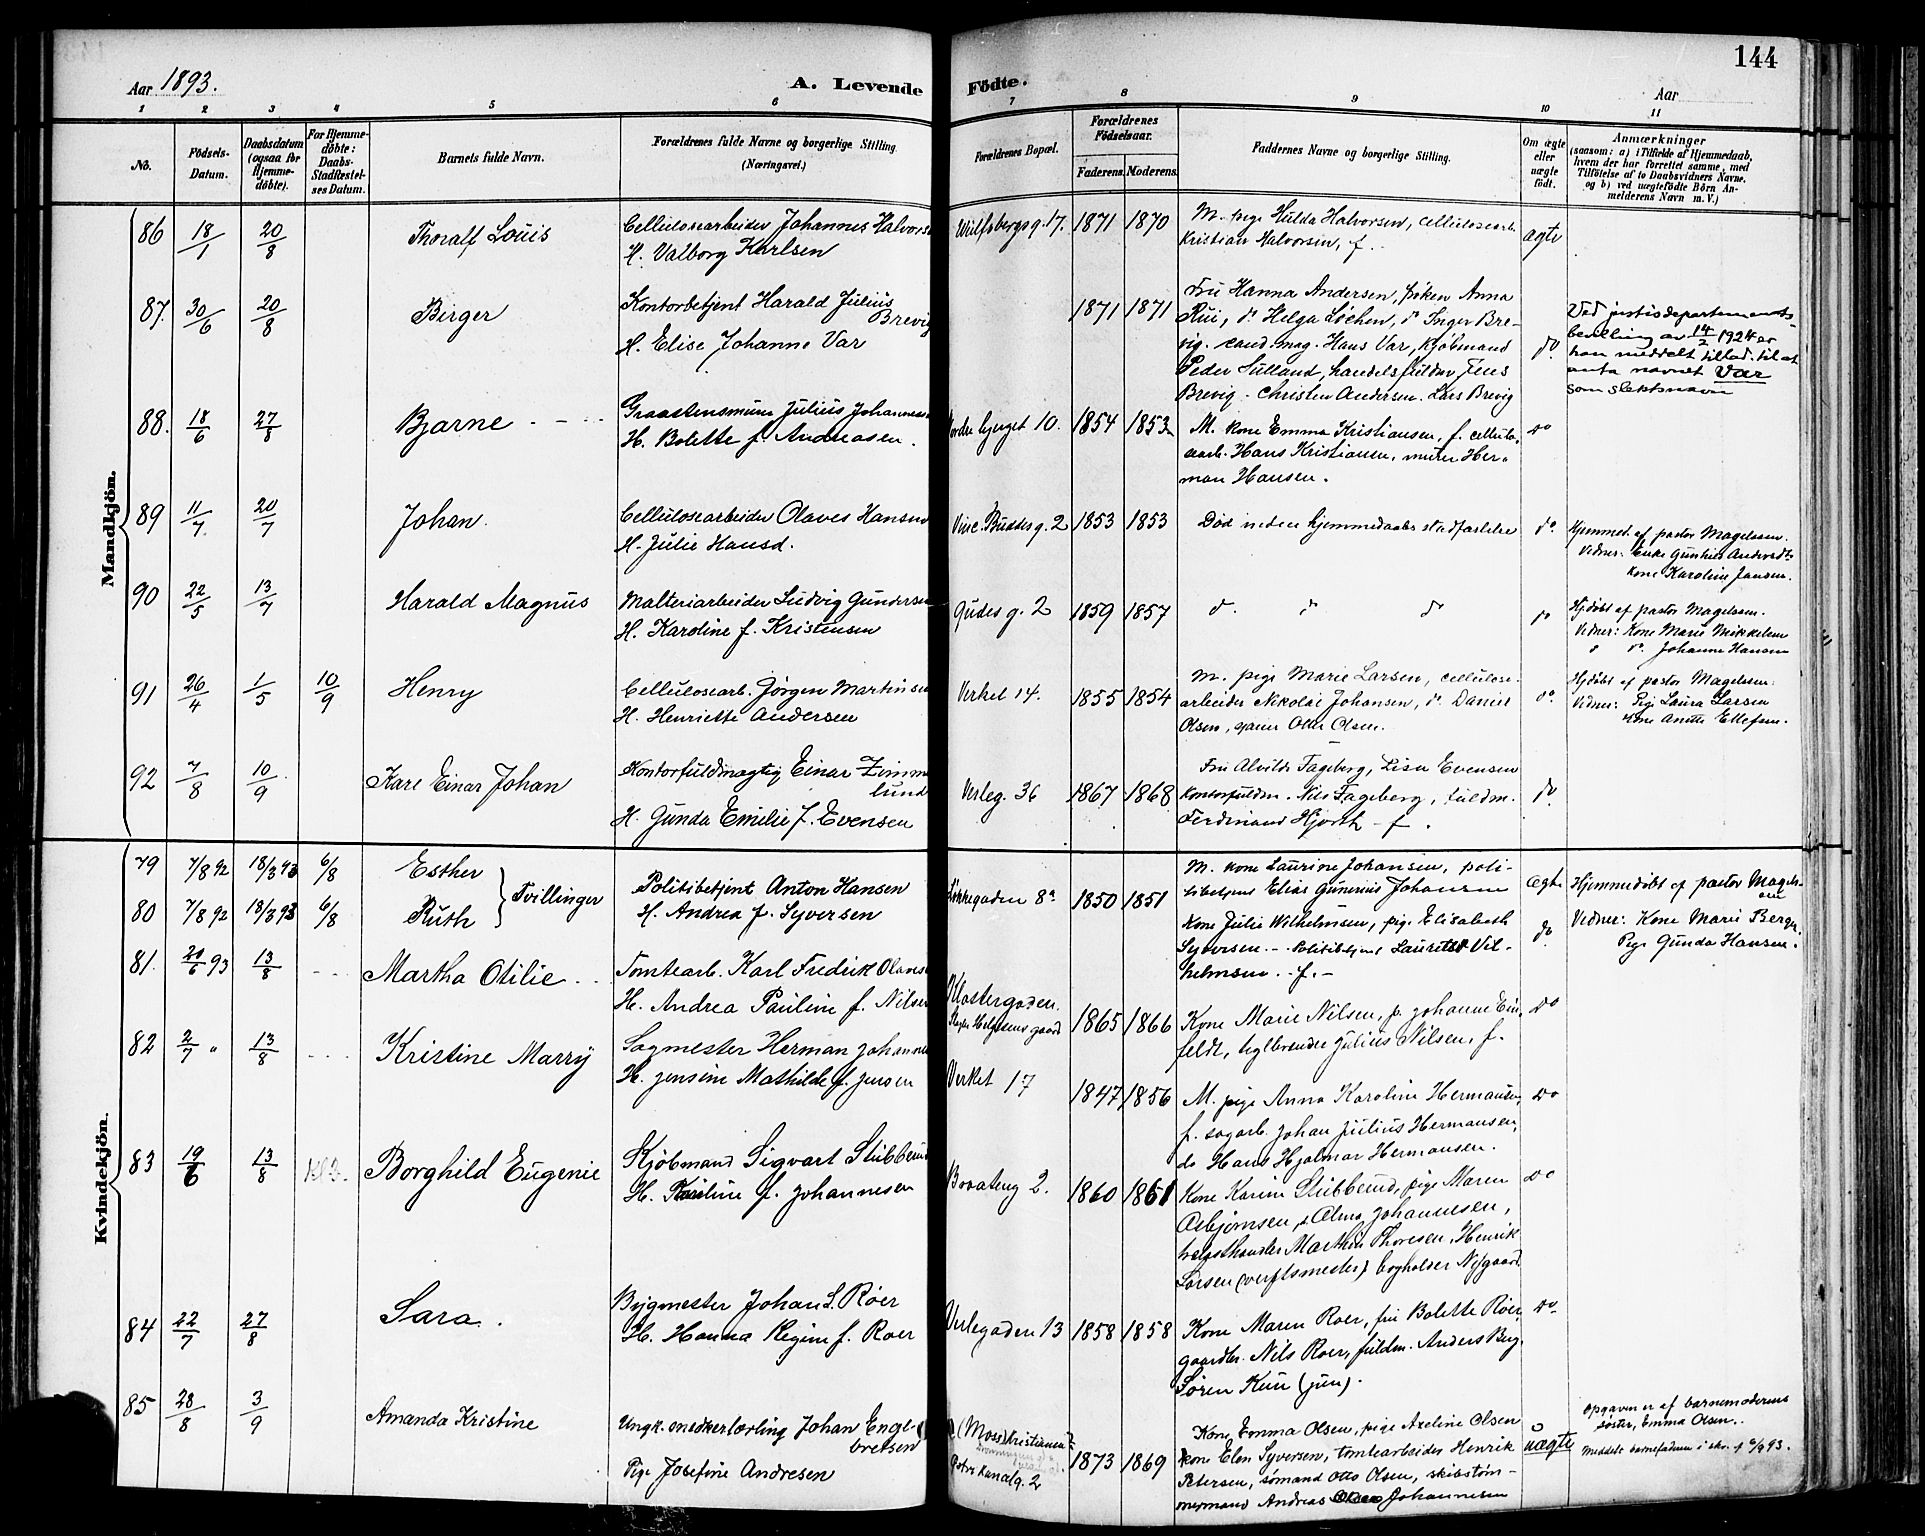 144
Aar 1893.
A. Levende Födte.
Aar
1 2 3 4 5 6 7 8 9 10 11
No.
Födsels-Datum.
Daabsdatum (ogsaa for Hjemme-döbte).
For Hjemme-döbte: Daabs-Stadfæstel-ses Datum.
Barnets fulde Navn.
Forældrenes fulde Navne og borgerlige Stilling (Næringsvei.)
Forældrenes Bopæl.
Forældrenes Födselsaar.
Faderens. Moderens.
Faddernes Navne og borgerlige Stilling.
Om ægte eller uægte födt.
Anmærkninger
(saasom: a) i Tilfælde af Hjemmedaab,
hvem der har forrettet samme, med
Tilföielse af to Daabsvidners Navne.
og b) ved uægtefödte Börn An-
melderens Navn m. V.)
Mandkjön.
86 18/1 20/8 Thoralf Louis
Cellulosearbeider Johannes Halvors
H. Valborg Karlsen
Wulfsbergsg. 17. 1871 1870
M. pige Hulda Halvorsen, cellulosearb.
Kristian Halvorsen, f.
ægte
87. 30/6 20/8 Birger
Kontorbetjent Harald Julius
Brevig
H. Elise Johanne Var
1871 1871
Fru Hanna Andersen, frøken Anna
Rui, do Helga Løchen, do Inger Bre-
vig. cand. mag. Hans Var, kjøbmand
Peder Sulland, handelsfuldm. Jens
Brevig. Christen Andersen. Lars Brevig
do
Ved justisdepartements-
bevilling av 14/2 1924 er
han meddelt tillad. til at
anta navnet Var
som slektsnavn
88. 18/6 27/8 Bjarne
Graastensmurer Julius Johannesen
H. Bolette f. Andreasen.
10. 1854 1853
M. kone Emma Kristiansen, f. cellulo.
searb. Hans Kristiansen, murer Her-
man Hansen.
do
89 11/7 20/7 Johan
Cellulosearbeider Olaves Hansen
H. Julie Hansd.
Vinc. Buddesg. 2 1853 1853
Død inden hjemmedaabs stadfæstelse
do
Hjemmed. af pastor Magelssen.
Vidner: Enke Gunhild
Kone Karoline Jansen.
90 22/5 13/7 Harald Magnus
Malteriarbeider Ludvig Gundersen
H. Karoline f. Kristensen
Gudes g. 2 1859 1857
do do do
do
Hjdøbt af pastor Magelssen.
Vidner: Kone Marie Mikkelsen
do Johanne Hansen
91 26/4 1/5 10/9 Henry
Cellulosearb. Jørgen Martinsen
H. Henriette Andersen
Verket 14. 1855 1854
M. pige Marie Larsen, cellulose-
arbeider Nikolai Johansen, do Daniel
Olsen, Otto Olsen.
do
Hjdøbt af pastor Magelssen.
Vidner: Pige Laura Larsen
Kone Anette Ellefsen.
92 7/8 10/9 Karl Einar Johan
Kontorfuldmægtig Einar Zimm
lund
H. Gunda Emilie f. Evensen
Verleg. 36 1867 1868
Fru Alvilde Fageberg, Lisa Evensen
Kontorfuldm. Nils Fageberg, fuldm.
Ferdinand Hjorth - f.
do
Kvindekjön.
79 7/8 92 18/3 93 6/8 Esther
80 7/8 92 18/3 93 6/8 Ruth
Tvillinger
Politibetjent Anton Hansen
H. Andrea f. Syversen
8a 1850 1851
M. kone Laurine Johansen, poli-
tibetjent Elias Gunerius Johansen
Kone Julie Wilhelmsen, pige Elisabeth
Syversen - Politibetjent Lauritz Vil-
helmsen. f. -
Ægte
do
Hjemmedøbt af pastor Magels-
sen
Vidner: Kone Marie Berge,
Pige Gunda Hansen.
81. 20/6 93 13/8 Martha Otilie
Tomtearb. Karl Fredrik Olaves
H. Andrea Pauline f. Nilsen
Klostergaden. 1865 1866
Kone Marie Nilsen, p. Johanne Ein-
feldt, teglbrænder Julius Nilsen, f.
do
82 2/7 " 13/8 Kristine Marry
Sagmester Herman Johannes
H. Jensine Mathilde f. Jensen
Verket 17 1847 1856
M. pige Anna Karoline Hermansen,
f. sagarb. Johan Julius Hermansen,
do Hans Hjalmar Hermansen.
do
83 19/6 13/8 Borghild Eugenie
Kjøbmand Sigvart Stibberud
H. Pauline f. Johannesen
Braateng 2. 1860 1861
Kone Karen Stibberud, pige Maren
Asbjørnsen, p. Alma Johannesen,
Martin Thoresen, Henrik
Larsen (verftsmester) bogholder Nygaard
do
84 22/7 27/8 Sara.
Bygmester Johan S. Røer
H. Hanna Regine f. Roer
Verlegaden 13 1858 1858
Kone Maren Roer, fru Bolette Røer,
gaardbr. Nils Roer, fuldm. Anders Berg.
Søren Kuu (jun).
do
85 28/8 3/9 Amanda Kristine
Ungk. snedkerlærling Johan Engl-
bretsen
Pige Josefine Andresen
(Moss)
g. 2 1873 1869
Kone Emma Olsen, pige Axeline Olsen
Kone Elen Syversen, tomtearbeider Henrik
Petersen, sømand Otto Olsen, skibstøm-
mermand Andreas Johannesen
uægte
Opgaven er af barnemoderens
søster, Emma Olsen.
Meddelt barnefaderen i skr. af 93.